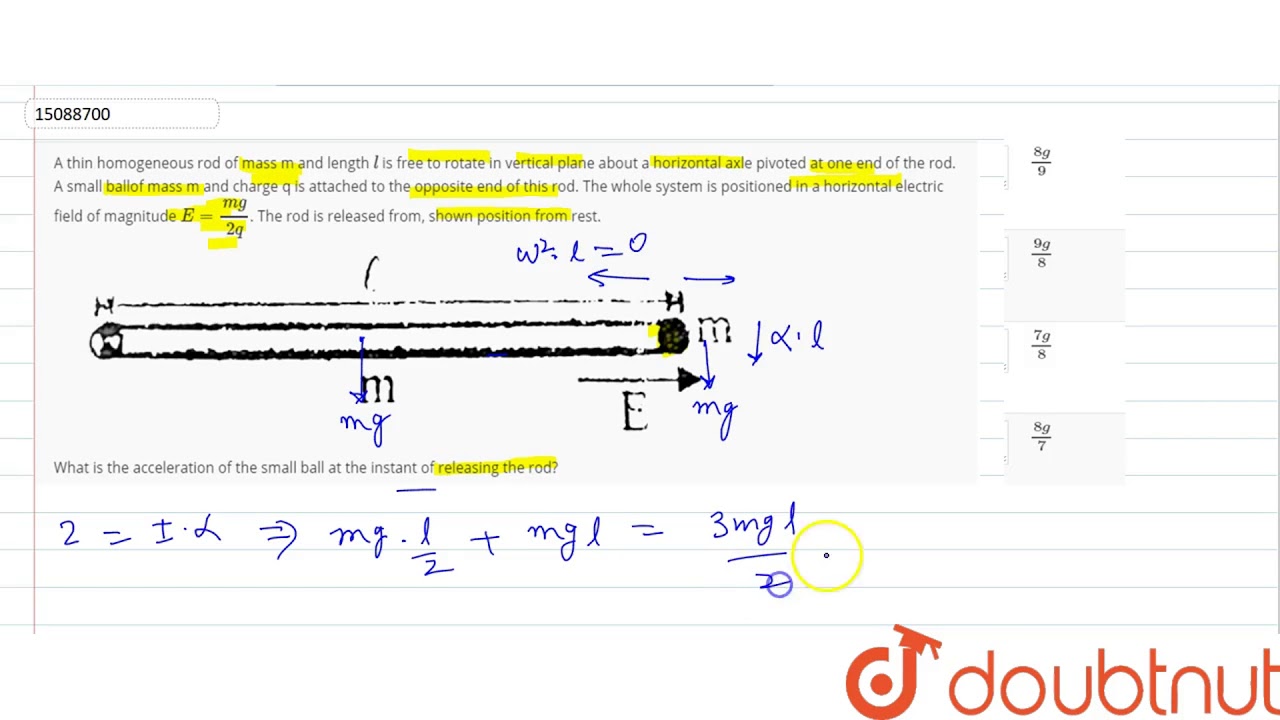 15088700
A thin homogeneous rod of mass m and length l is free to rotate in vertical plane about a horizontal axle pivoted at one end of the rod.
A small ballof mass m and charge q is attached to the opposite end of this rod. The whole system is positioned in a horizontal electric
field of magnitude E = mg/2q. The rod is released from, shown position from rest.
ω²·l = 0
l
m
α·l
m
E
mg
mg
What is the acceleration of the small ball at the instant of releasing the rod?
2 = I·α ⇒ mg·l/2 + mgl = 3mgl/2
8g/9
9g/8
7g/8
8g/7
doubtnut